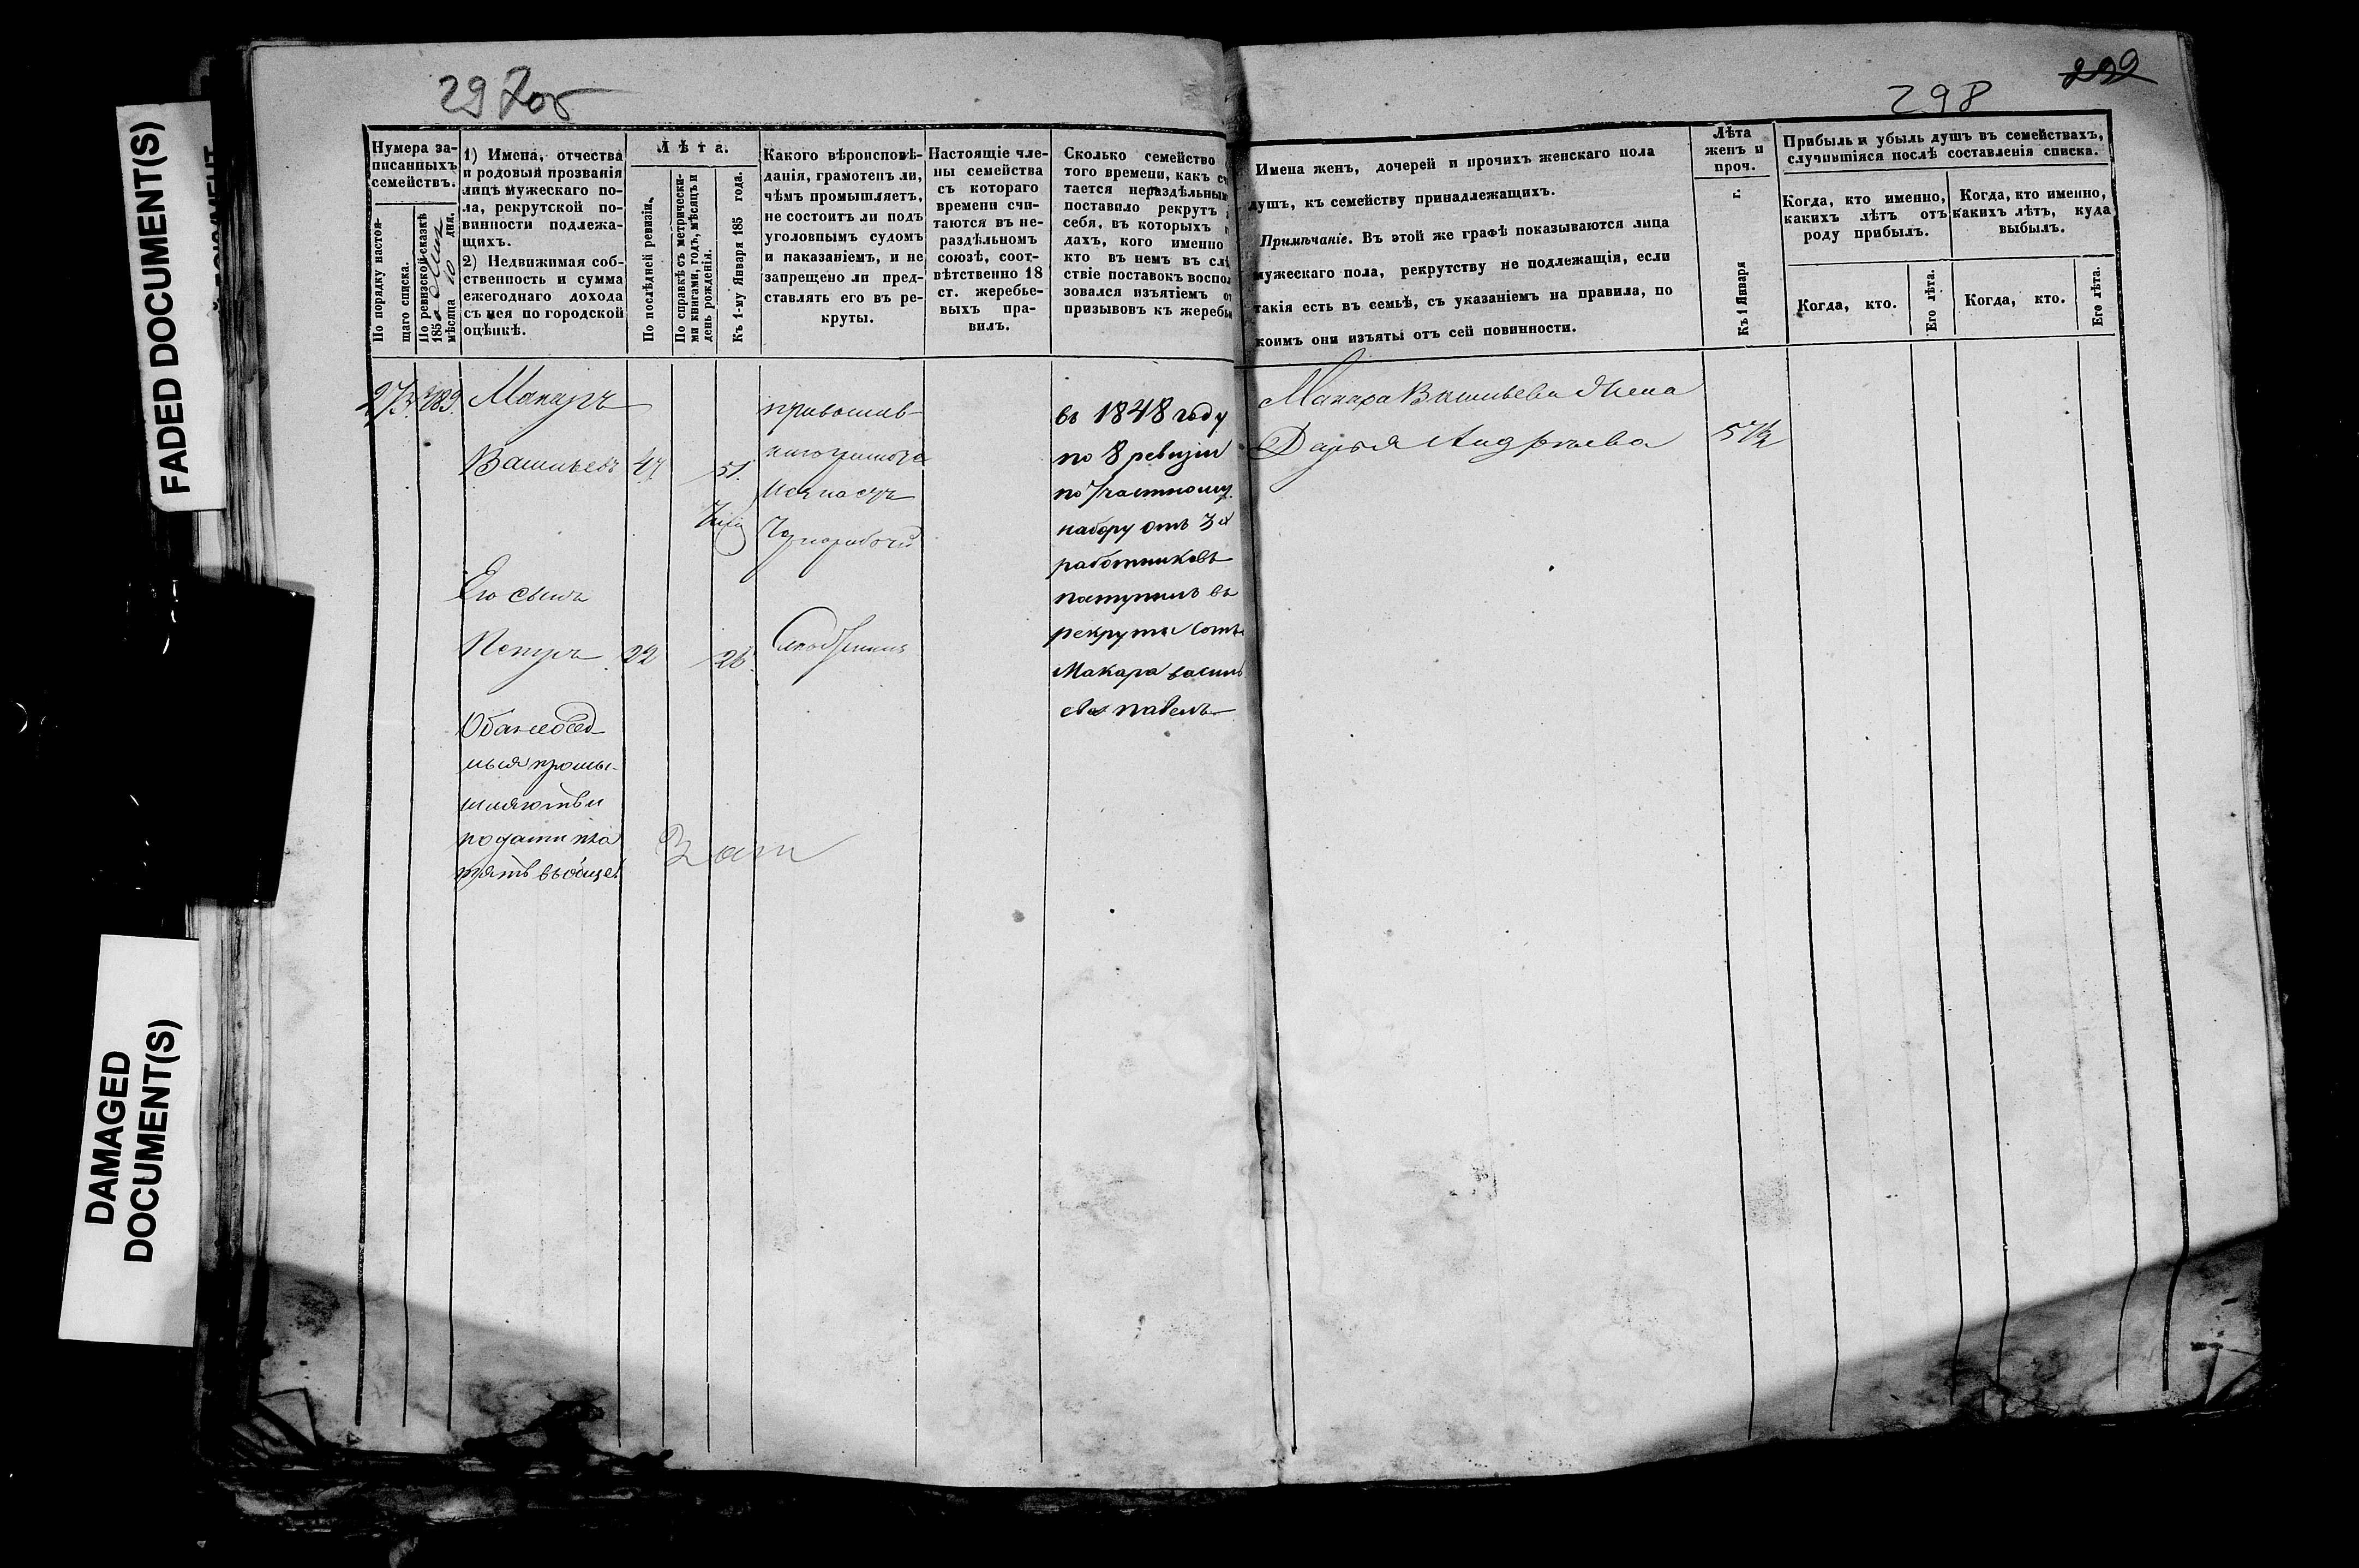 FADED DOCUMENT(S)
DAMAGED
DOCUMENT(S)
297об
298
Нумера за-
писанныхъ
семействъ.
По порядку настоя-
щаго списка.
По ревизской сказкѣ
185
мѣсяца
дня.
1) Имена, отчества
и родовыя прозванія
лицъ мужескаго по-
ла, рекрутской по-
винности подлежа-
щихъ.
2) Недвижимая соб-
ственность и сумма
ежегоднаго дохода
съ нея по городской
оцѣнкѣ.
Лѣта.
По послѣдней ревизіи.
По справкѣ съ метрически-
ми книгами, годъ, мѣсяцъ и
день рожденія.
Къ 1-му Января 185 года.
Какого вѣроисповѣ-
данія, грамотенъ ли,
чѣмъ промышляетъ,
не состоитъ ли подъ
уголовнымъ судомъ
и наказаніемъ, и не
запрещено ли пред-
ставлять его въ ре-
круты.
Настоящіе чле-
ны семейства
съ котораго
времени счи-
таются въ не-
раздѣльномъ
союзѣ, соот-
вѣтственно 18
ст. жеребье-
выхъ пра-
вилъ.
Сколько семейство
того времени, какъ сч
тается нераздѣльным
поставило рекрутъ
себя, въ которыхъ г
дахъ, кого именно
кто въ немъ въ слѣ
ствіе поставокъ воспол
зовался изъятіемъ от
призывовъ къ жеребь
Имена женъ, дочерей и прочихъ женскаго пола
душъ, къ семейству принадлежащихъ.
Примѣчаніе. Въ этой же графѣ показываются лица
мужескаго пола, рекрутству не подлежащія, если
такія есть въ семьѣ, съ указаніемъ на правила, по
коимъ они изъяты отъ сей повинности.
Лѣта
женъ и
проч.
Къ 1 Января
г.
Прибыль и убыль душъ въ семействахъ,
случившіяся послѣ составленія списка.
Когда, кто именно,
какихъ лѣтъ отъ
роду прибылъ.
Когда, кто.
Его лѣта.
Когда, кто именно,
какихъ лѣтъ, куда
выбылъ.
Когда, кто.
Его лѣта.
Макаръ
Васильевъ 47 51.
Его сынъ
Петръ 22 26.
промы-
шляютъ и
подати пла
тятъ въобще
чернорабочій
въ 1848 году
по 8 ревизіи
по частному
набору отъ 3х
работниковъ
поступилъ въ
рекруты сынъ
Макара василь
ева павелъ
Макара Васильева жена
Дарья Андреева